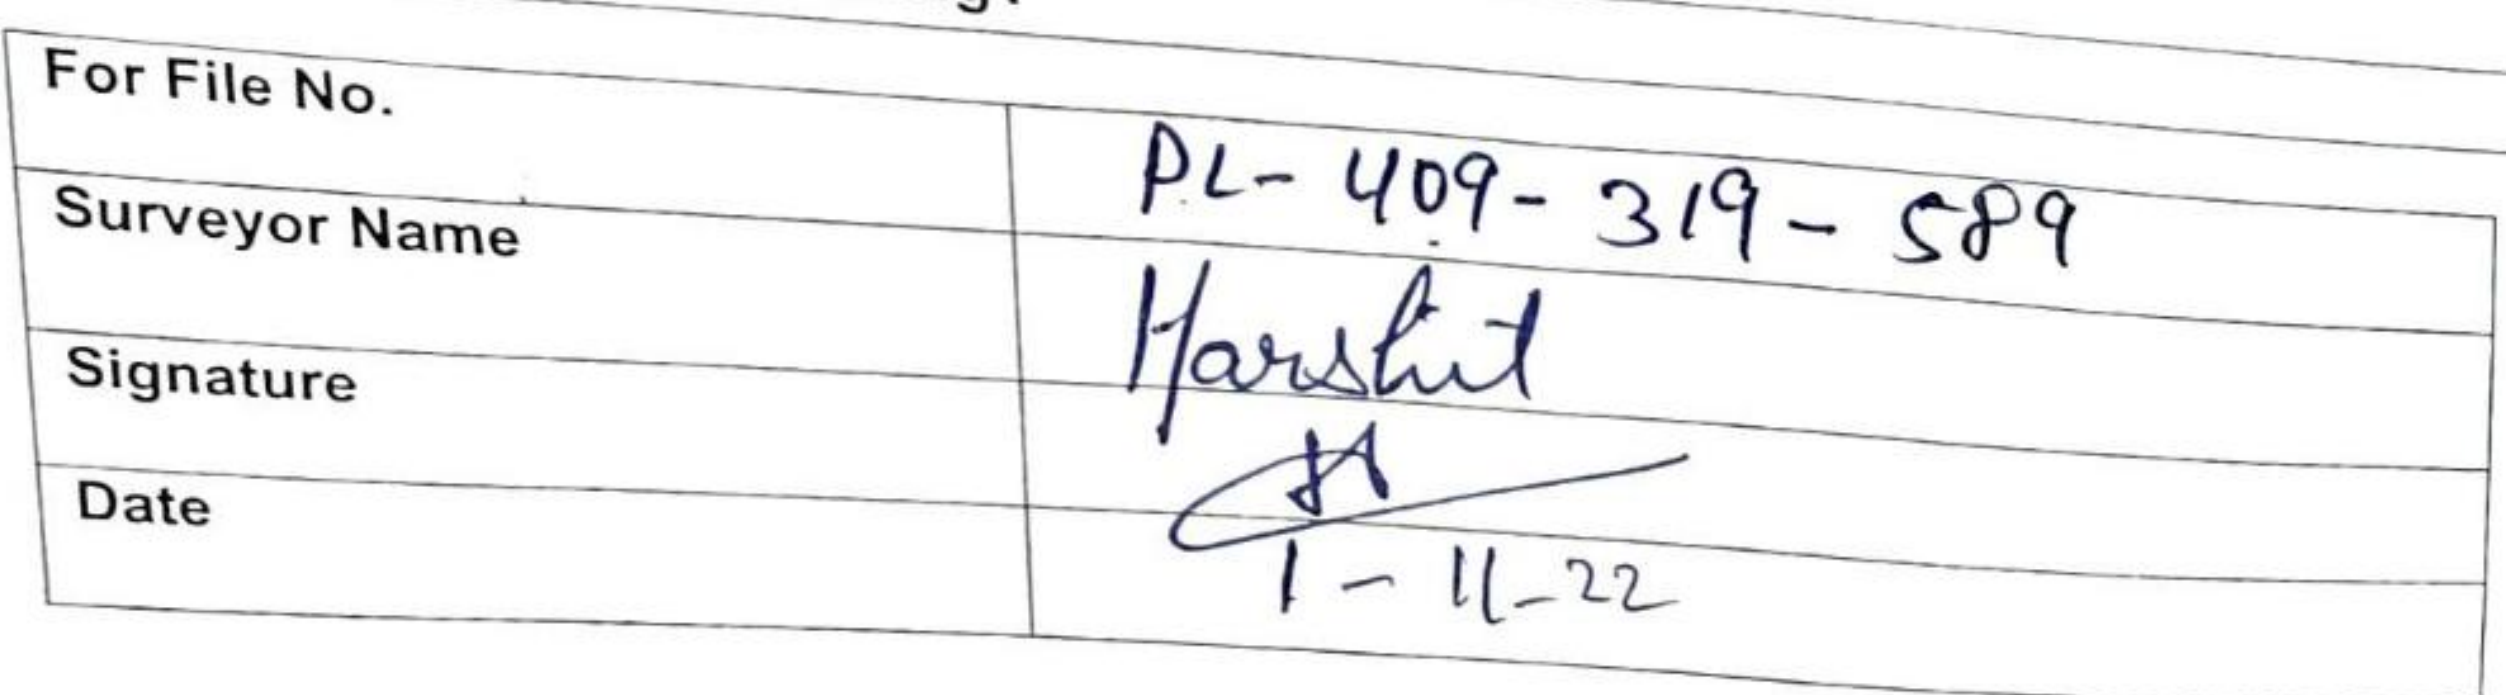 For File No. PL- 409- 319- 589
Surveyor Name Harshit
Signature
Date 1 - 11-22